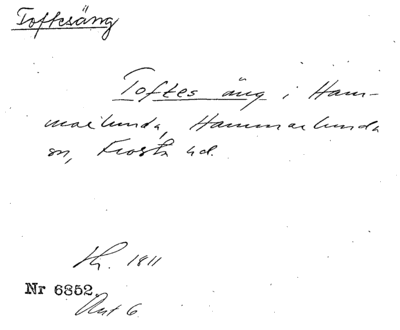 Toftesäng
Toftes äng i Ham-
marlunda, Hammarlunda
sn, Frosta hd.
1811
Nr 6852.
6